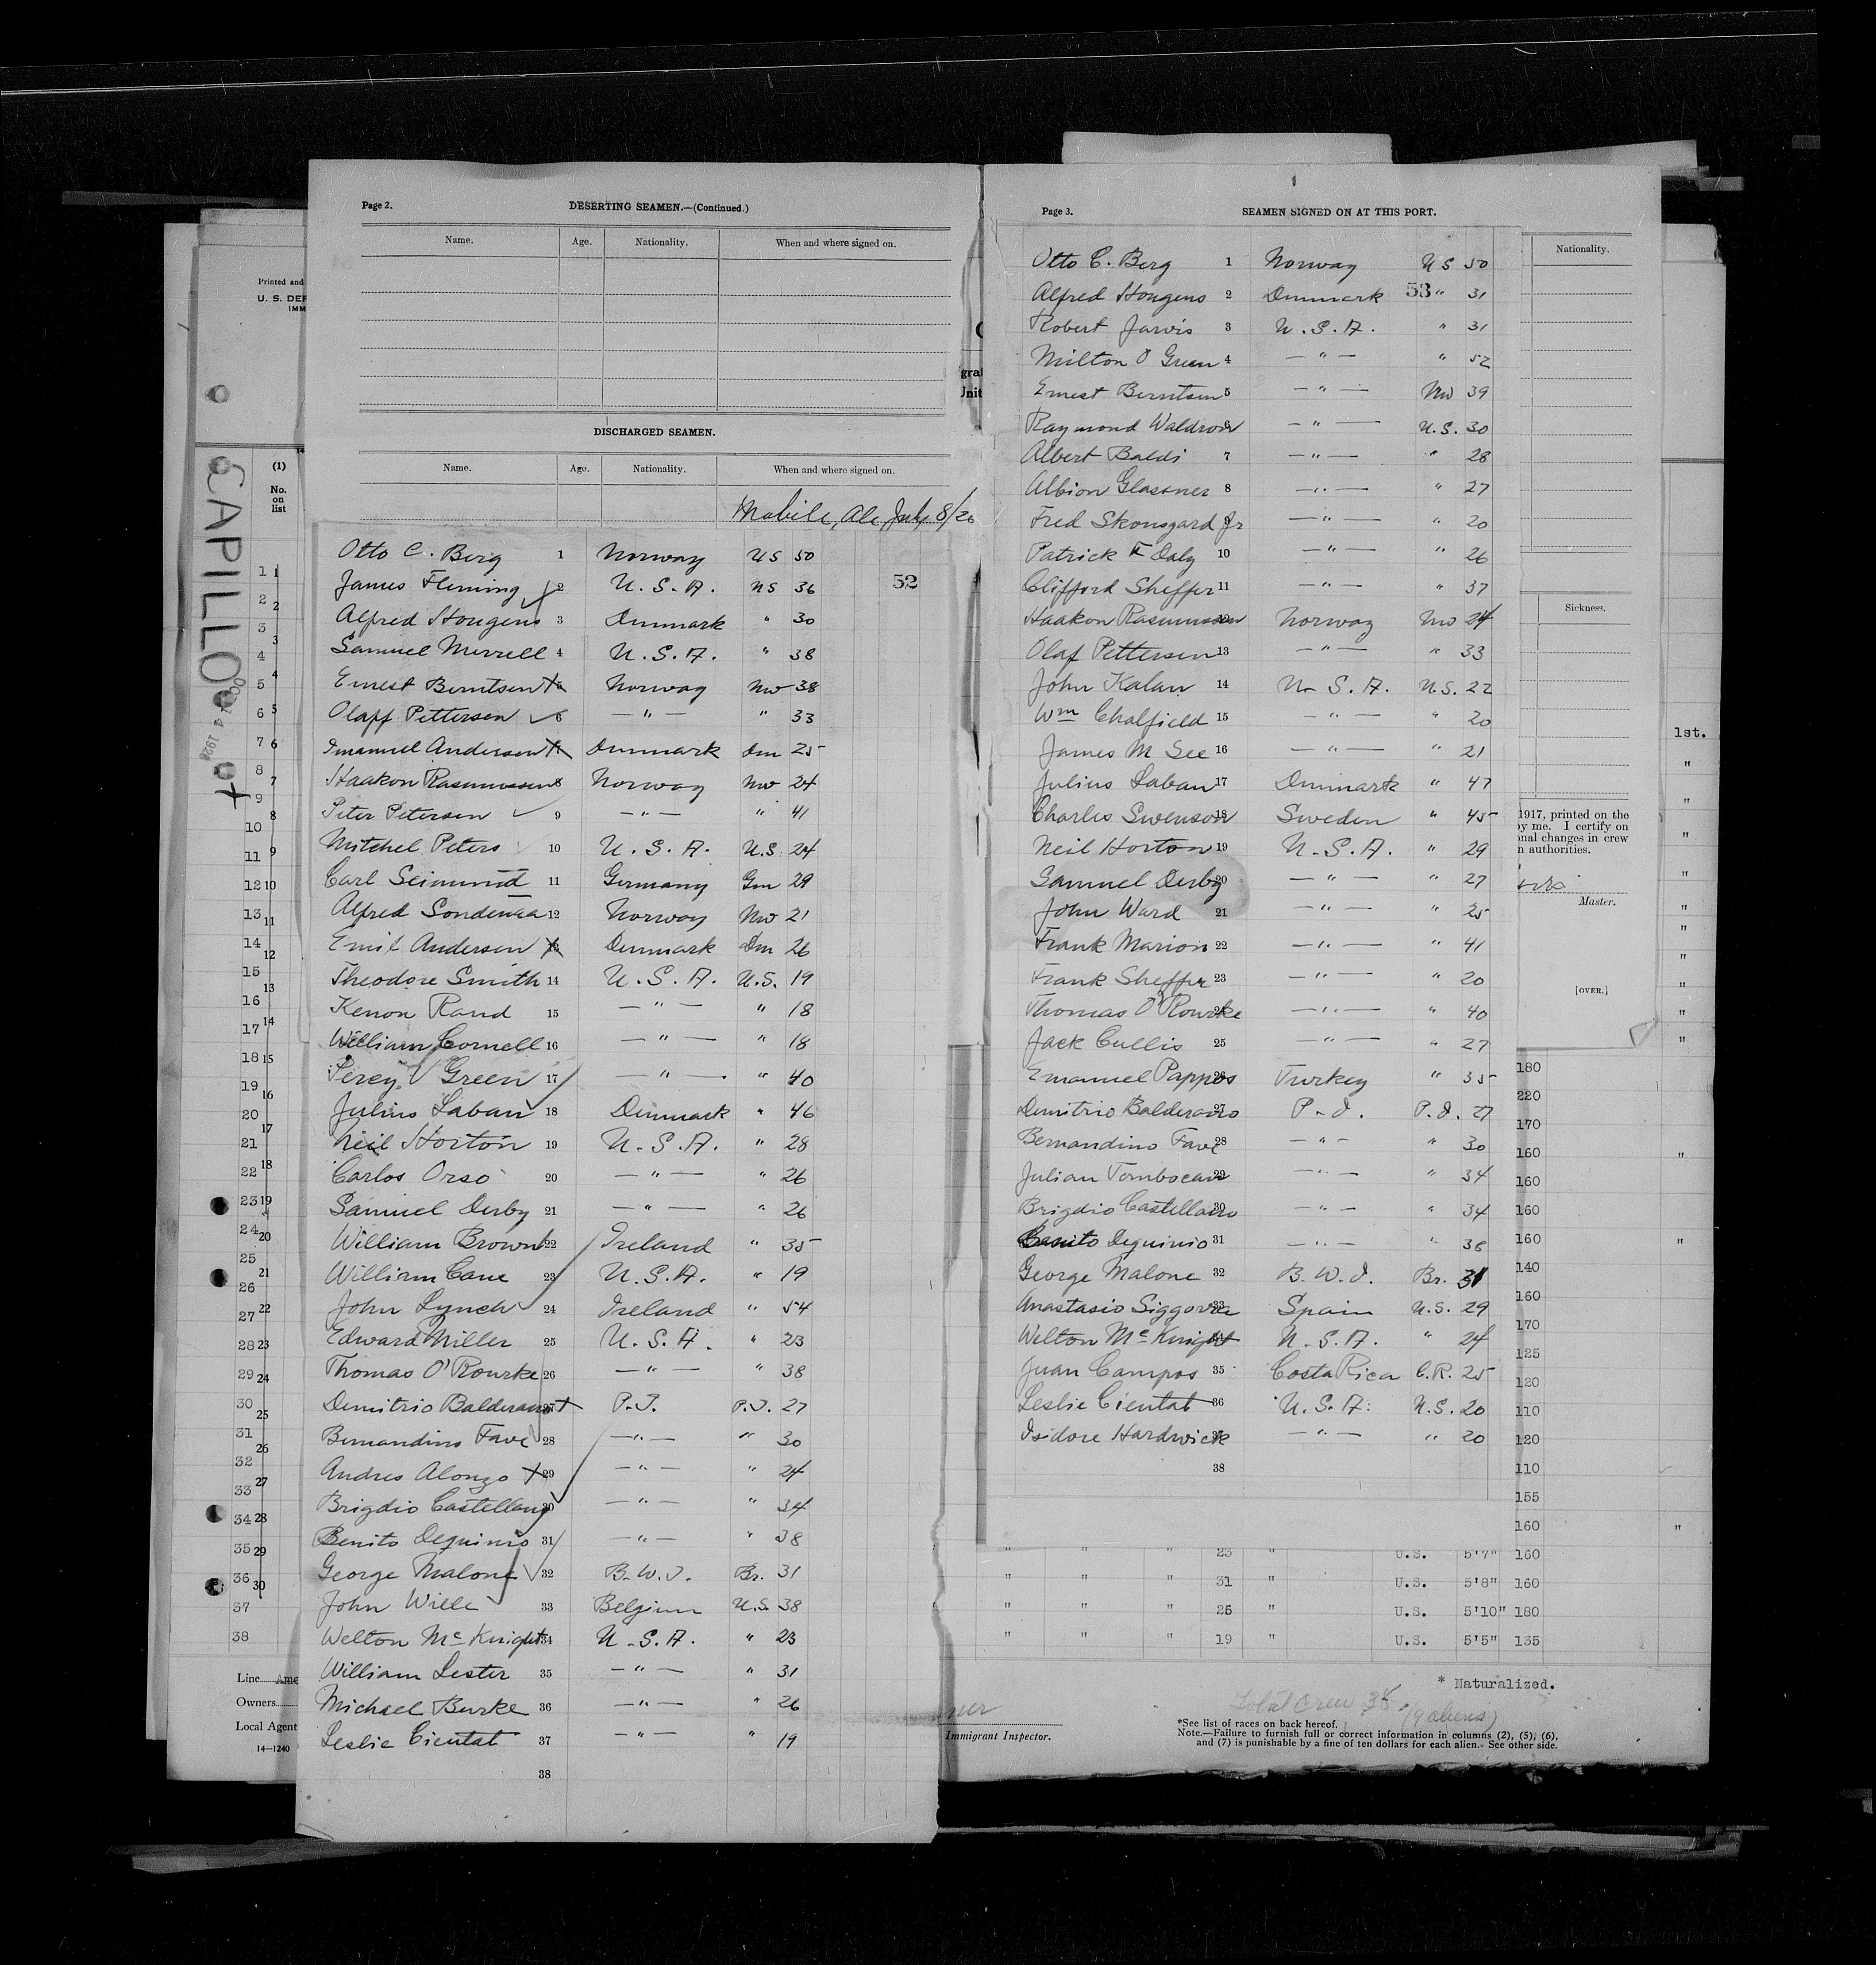 Page 2.
DESERTING SEAMEN.—(Continued.)
Name. Age. Nationality. When and where signed on.
DISCHARGED SEAMEN.
Name. Age. Nationality. When and where signed on.
Mobile, Ala, July 8/26
Otto C. Berg 1 Norway US 50
52
James Fleming 2 U.S.A. US 36
Alfred Hougens 3 Denmark " 30
Samuel Merrell 4 U.S.A. " 38
Ernest Berntsen 5 Norway Nw 38
Olaff Pettersen 6 — " — " 33
Imanuel Andersen 7 Denmark Dm 25
Haakon Rasmussen 8 Norway Nw 24
Peter Petersen 9 — " — " 41
Mitchel Peters 10 U.S.A. U.S. 24
Carl Seimund 11 Germany Gm 29
Alfred Sondenaa 12 Norway Nw 21
Emil Andersen 13 Denmark Dm 26
Theodore Smith 14 U.S.A. U.S. 19
Kenon Rand 15 — " — " 18
William Cornell 16 — " — " 18
Percy V Green 17 — " — " 40
Julius Laban 18 Denmark " 46
Neil Horton 19 U.S.A. " 28
Carlos Orso 20 — " — " 26
Samuel Derby 21 — " — " 26
William Brown 22 Ireland " 35
William Cane 23 U.S.A. " 19
John Lynch 24 Ireland " 54
Edward Miller 25 U.S.A. " 23
Thomas O'Rourke 26 — " — " 38
Demitrio Balderamo 27 P.I. P.I. 27
Bernandino Fave 28 — " — " 30
Andres Alonzo 29 — " — " 24
Brigdio Castellano 30 — " — " 34
Benito Dequinio 31 — " — " 38
George Malone 32 B.W.I. Br. 31
John Wille 33 Belgium U.S. 38
Welton McKnight 34 U.S.A. " 23
William Lester 35 — " — " 31
Michael Burke 36 — " — " 26
Leslie Cientat 37 — " — " 19
38
Page 3.
SEAMEN SIGNED ON AT THIS PORT.
Otto C. Berg 1 Norway US 50
Alfred Hougens 2 Denmark 53 " 31
Robert Jarvis 3 U.S.A. " 31
Milton O Green 4 — " — " 52
Ernest Berntsen 5 — " — Nw 39
Raymond Waldron 6 — " — U.S. 30
Albert Baldi 7 — " — " 28
Albion Glassner 8 — " — " 27
Fred Skonsgard Jr 9 — " — " 20
Patrick F Daly 10 — " — " 26
Clifford Sheffer 11 — " — " 37
Haakon Rasmussen 12 Norway Nw 24
Olaf Pettersen 13 — " — " 33
John Kalan 14 U.S.A. U.S. 22
Wm Chalfield 15 — " — " 20
James M See 16 — " — " 21
Julius Laban 17 Denmark " 47
Charles Swenson 18 Sweden " 45
Neil Horton 19 U.S.A. " 29
Samuel Derby 20 — " — " 27
John Ward 21 — " — " 25
Frank Marion 22 — " — " 41
Frank Sheffer 23 — " — " 20
Thomas O'Rourke 24 — " — " 40
Jack Cullis 25 — " — " 27
Emanuel Pappos 26 Turkey " 35
Demitrio Balderamo 27 P.I. P.I. 27
Bernandino Fave 28 — " — " 30
Julian Tombocan 29 — " — " 34
Brigdio Castellano 30 — " — " 34
Benito Dequinio 31 — " — " 38
George Malone 32 B.W.I. Br. 31
Anastasio Siggovia 33 Spain U.S. 29
Welton McKnight 34 U.S.A. " 24
Juan Campos 35 Costa Rica C.R. 25
Leslie Cientat 36 U.S.A. U.S. 20
Isidore Hardwick 37 — " — " 20
38
Printed and
U. S. DEP
IMM
(1)
No.
on
list
CAPILLO
Line Ame
Owners
Local Agent
14—1240
Nationality.
Sickness.
1917, printed on the
by me. I certify on
nal changes in crew
n authorities.
Master.
[OVER.]
1st.
180
220
170
160
160
160
160
140
160
170
125
120
110
120
110
155
160
" " " 23 " U.S. 5'7" 160
" " " 31 " U.S. 5'8" 160
" " " 25 " U.S. 5'10" 180
" " " 19 " U.S. 5'5" 135
* Naturalized.
Total Crew 38
(9 aliens)
Immigrant Inspector.
*See list of races on back hereof.
Note.—Failure to furnish full or correct information in columns (2), (5), (6),
and (7) is punishable by a fine of ten dollars for each alien. See other side.